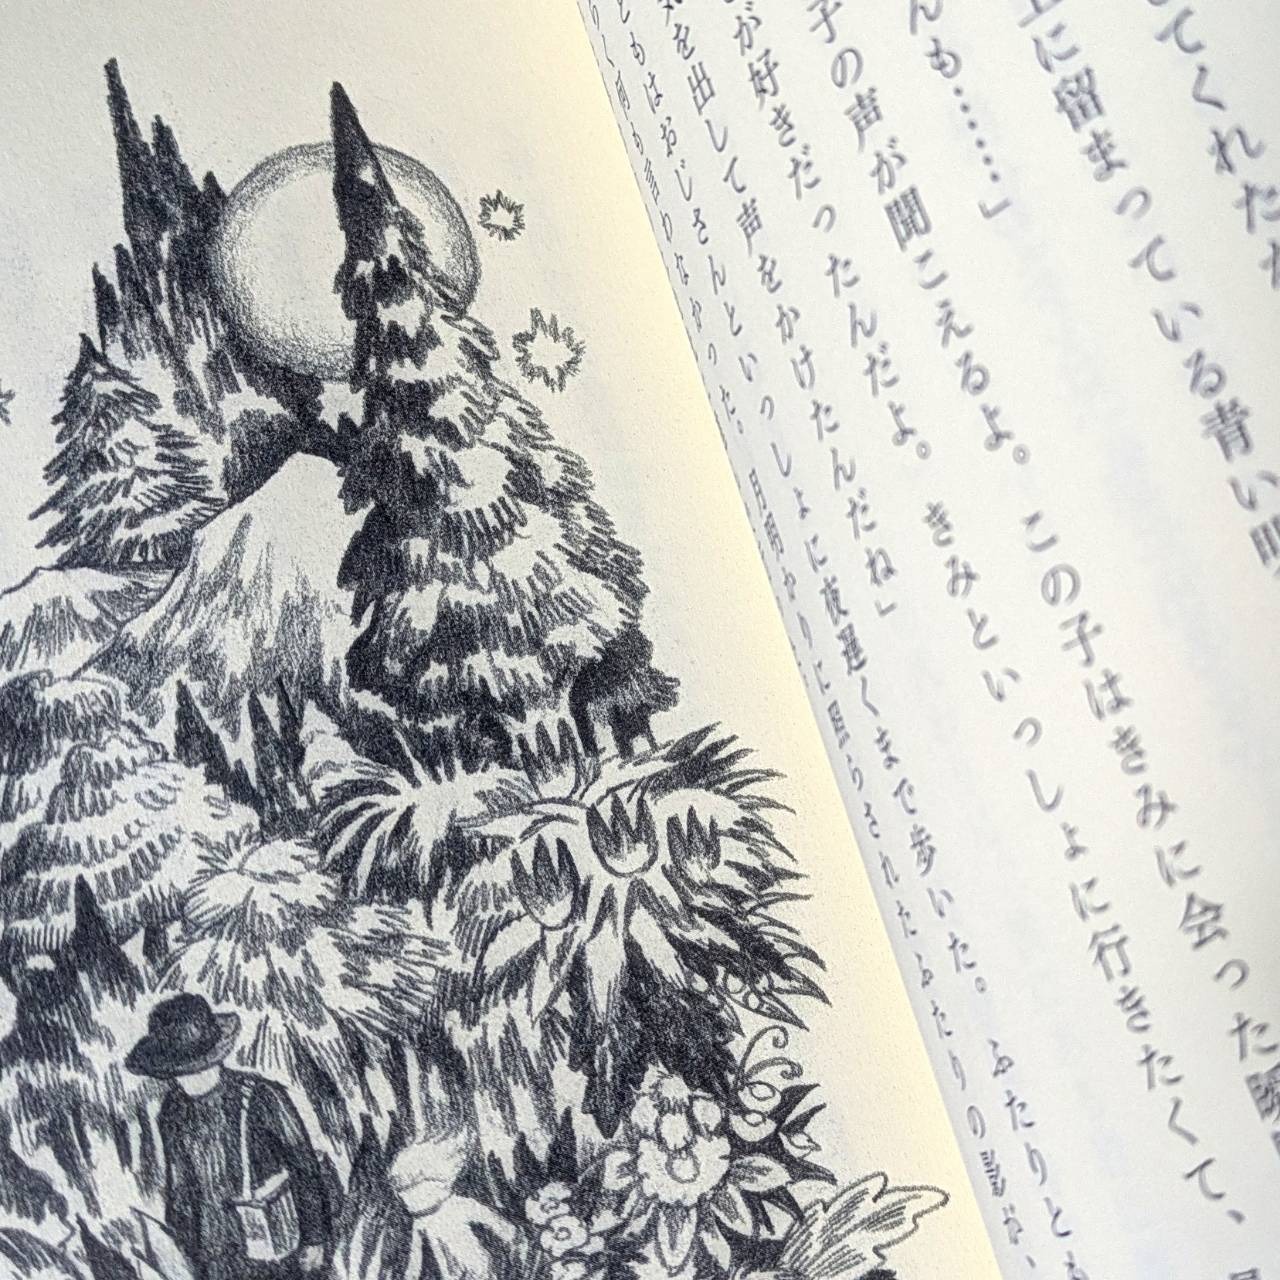 てくれた
に留まっている青い
んも……」
子の声が聞こえるよ。この子はきみに会った瞬
が好きだったんだよ。きみといっしょに行きたくて、
気を出して声をかけたんだね」
ともはおじさんといっしょに夜遅くまで歩いた。ふたりとも
く何も言わなかった。月明かりに照らされたふたりの影が、